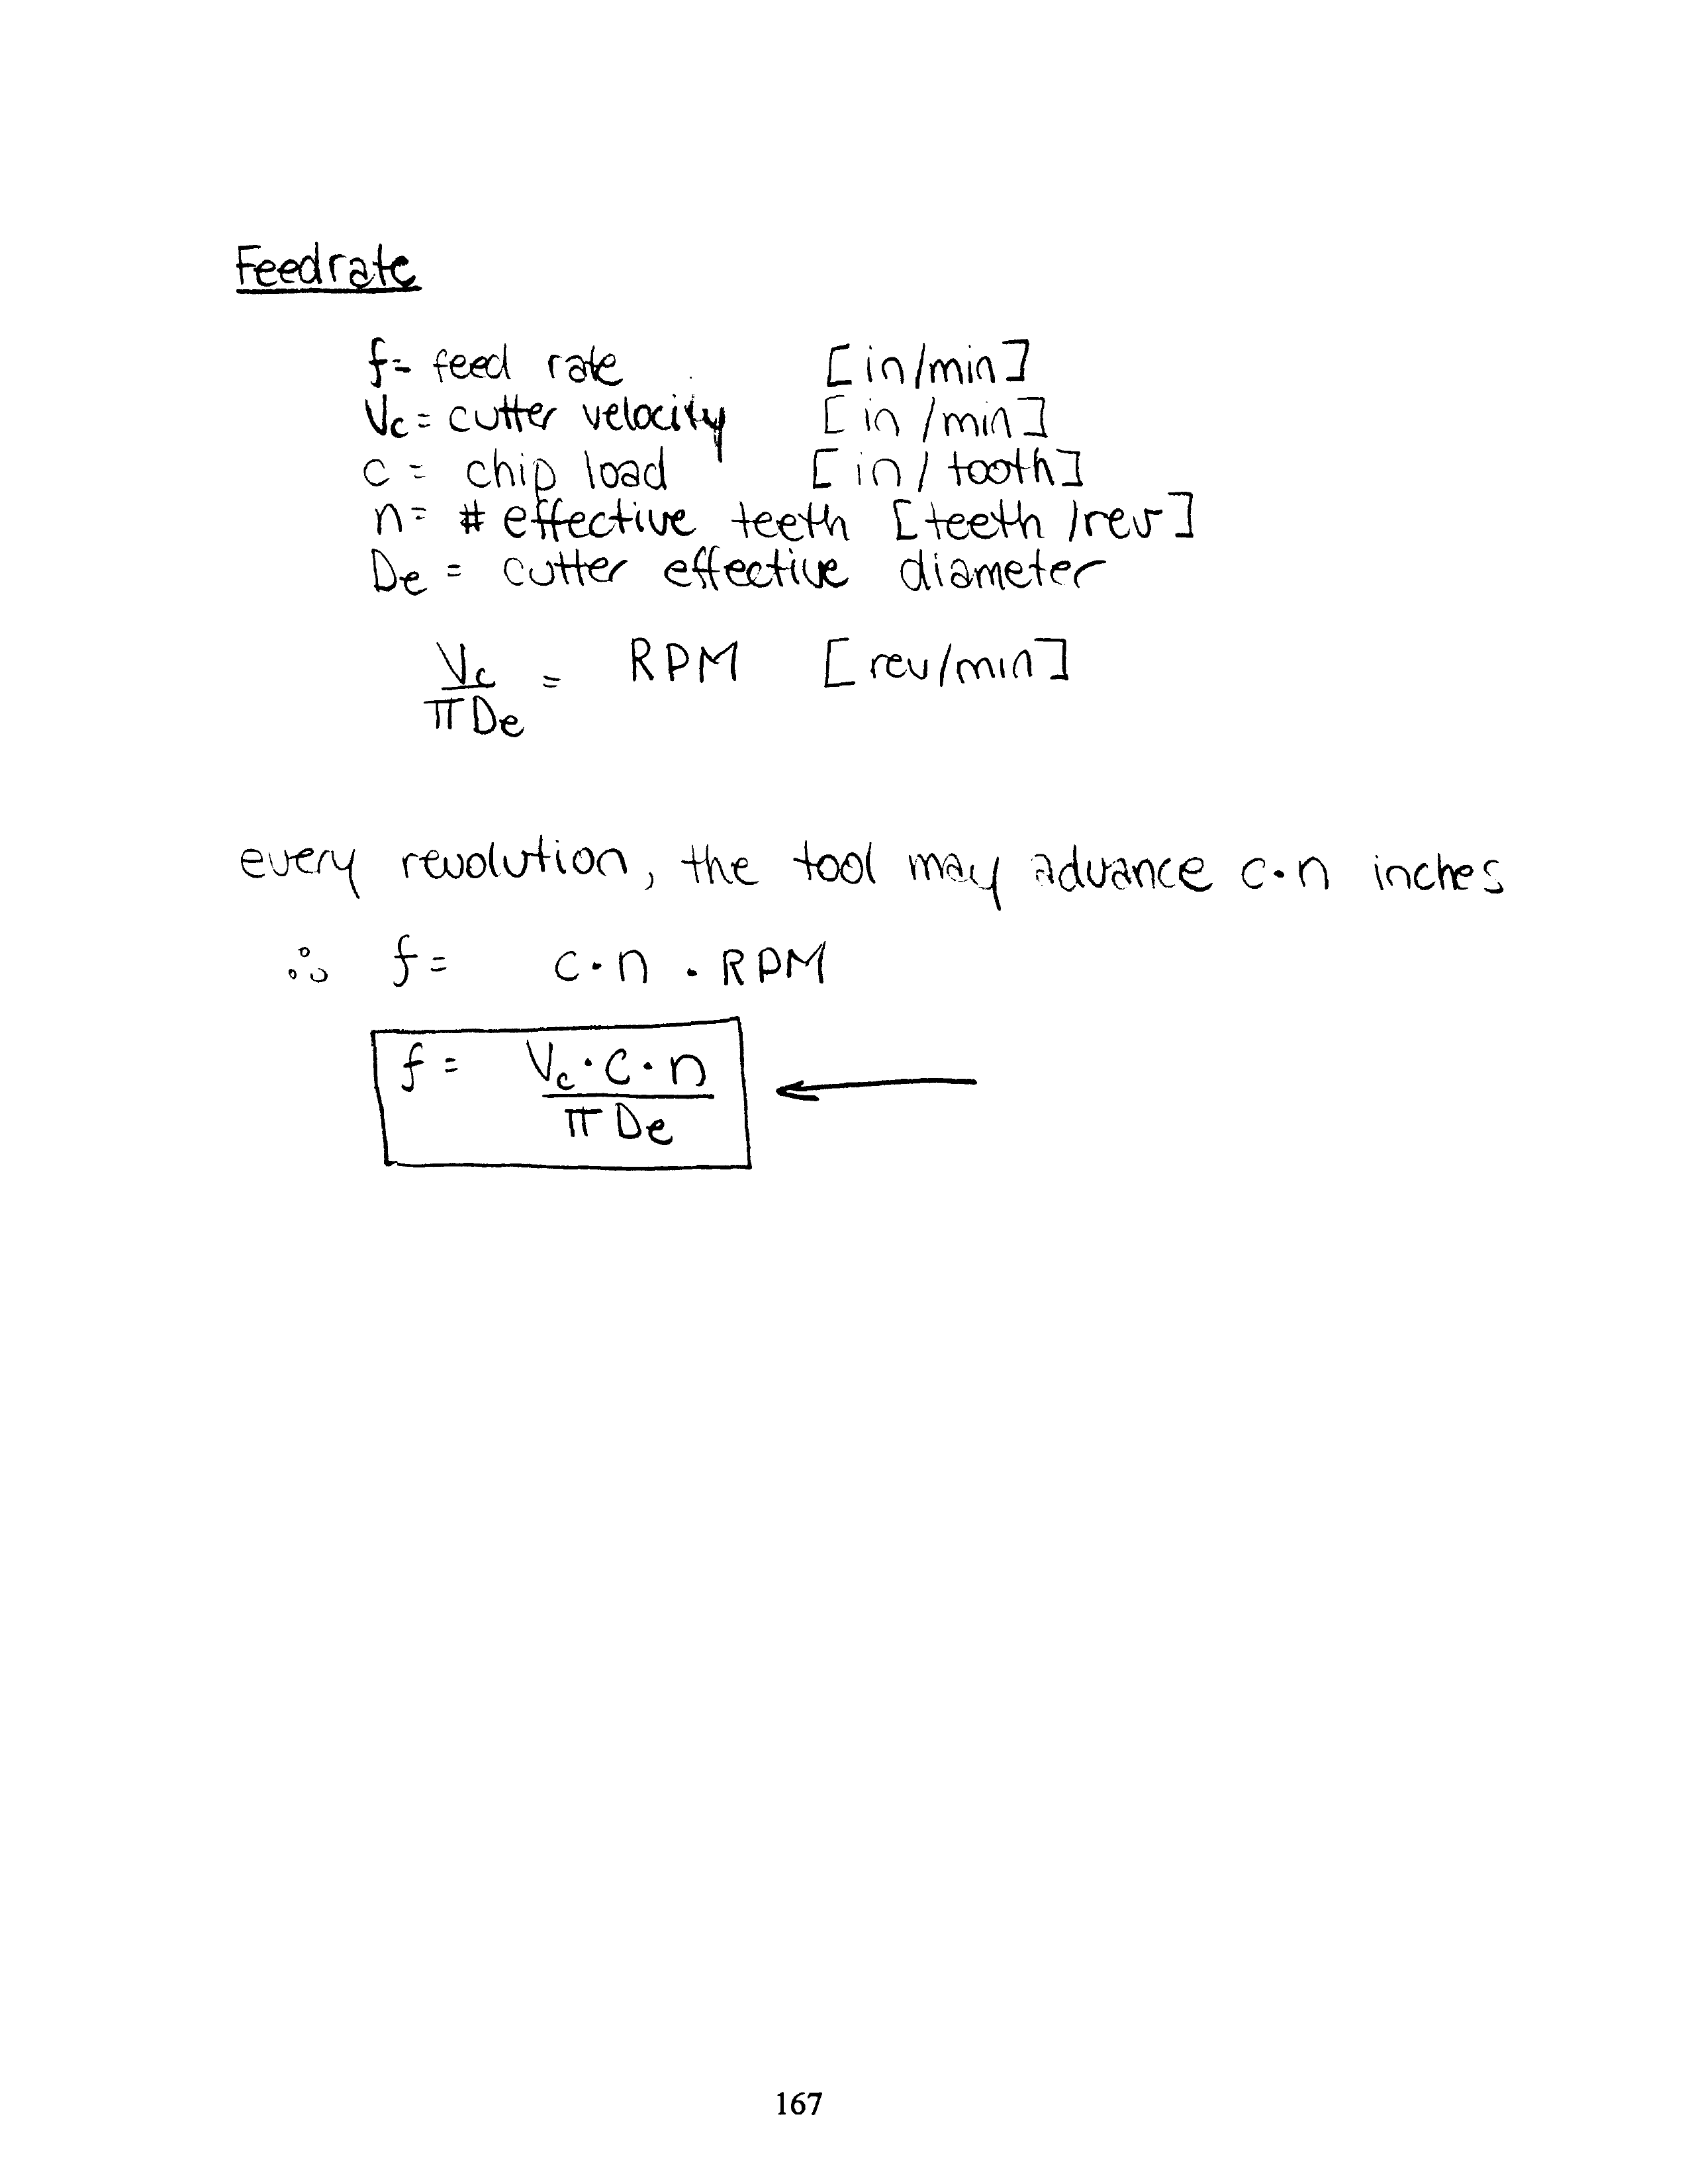 Feedrate
f = feed rate [in/min]
Vc = cutter velocity [in/min]
c = chip load [in/tooth]
n = # effective teeth [teeth/rev]
De = cutter effective diameter
Vc
πDe = RPM [rev/min]
every revolution, the tool may advance c·n inches
∴ f = c·n·RPM
f = Vc·c·n
πDe
167